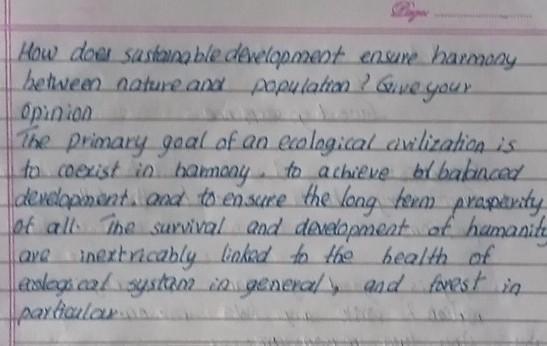 Page
How does sustainable development ensure harmony
between nature and population? Give your
opinion
The primary goal of an ecological civilization is
to coexist in harmony, to achieve balanced
development, and to ensure the long term prosperity
of all. The survival and development of humanity
are inextricably linked to the health of
ecological system in general, and forest in
particular.